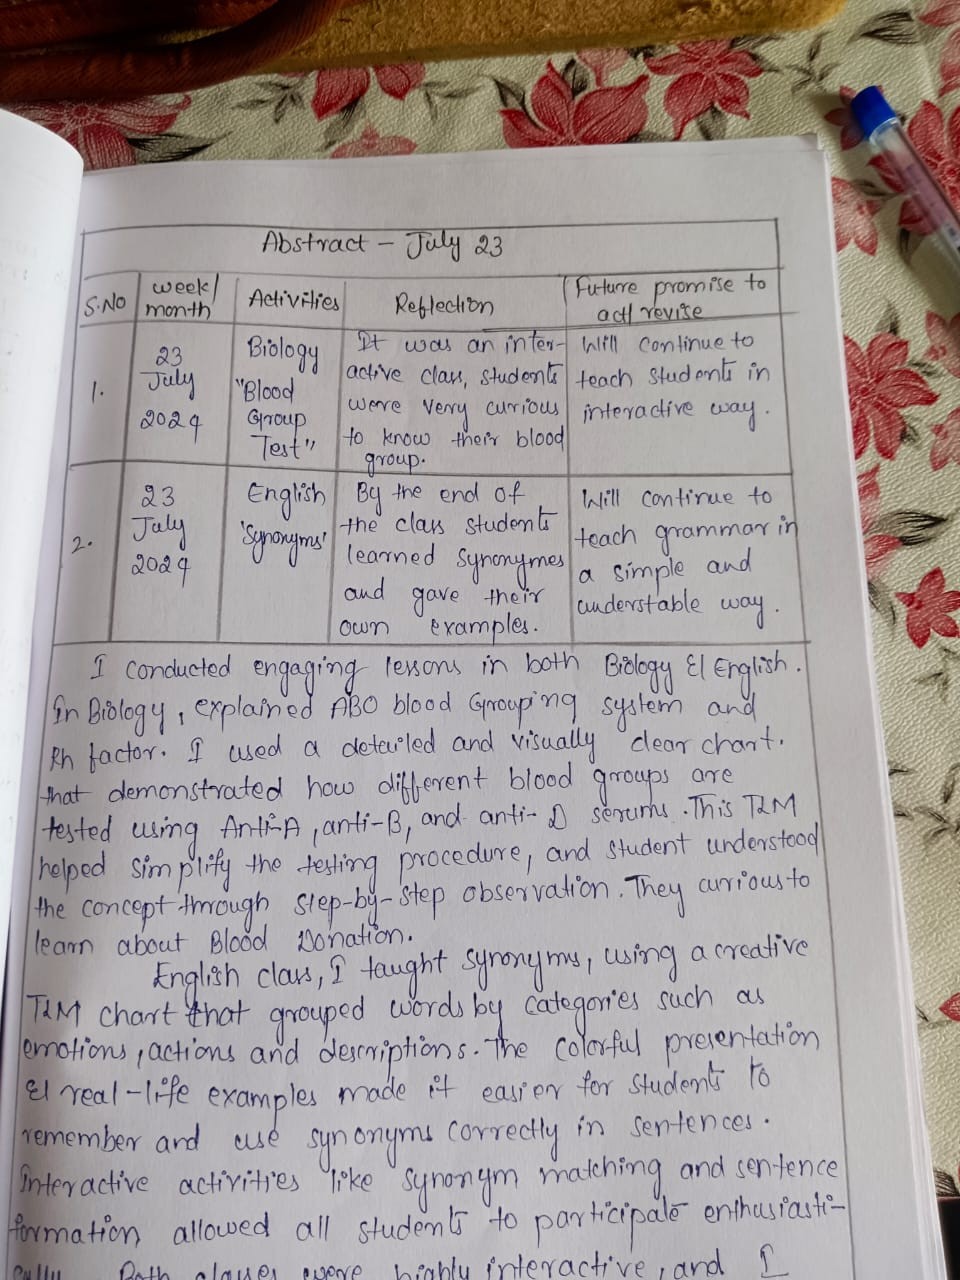 Abstract - July 23
S.No
week/
month
Activities
Reflection
Future promise to
act/ revise
1.
23
July
2024
Biology
"Blood
Group
Test"
It was an inter-
active class, students
were very curious
to know their blood
group.
Will continue to
teach students in
interactive way.
2.
23
July
2024
English
'Synonyms'
By the end of
the class students
learned synonymes
and gave their
own examples.
Will continue to
teach grammar in
a simple and
understable way.
I conducted engaging lessons in both Biology & English.
In Biology, explained ABO blood Grouping system and
Rh factor. I used a detailed and visually clear chart.
that demonstrated how different blood groups are
tested using Anti-A, anti-B, and anti-D serums. This TLM
helped simplify the testing procedure, and student understood
the concept through step-by-step observation. They curious to
learn about Blood Donation.
English class, I taught synonyms, using a creative
TLM chart that grouped words by categories such as
emotions, actions and descriptions. The colorful presentation
& real-life examples made it easier for students to
remember and use synonyms correctly in sentences.
Interactive activities like synonym matching and sentence
formation allowed all students to participate enthusiasti-
cally. Both classes were highly interactive, and I